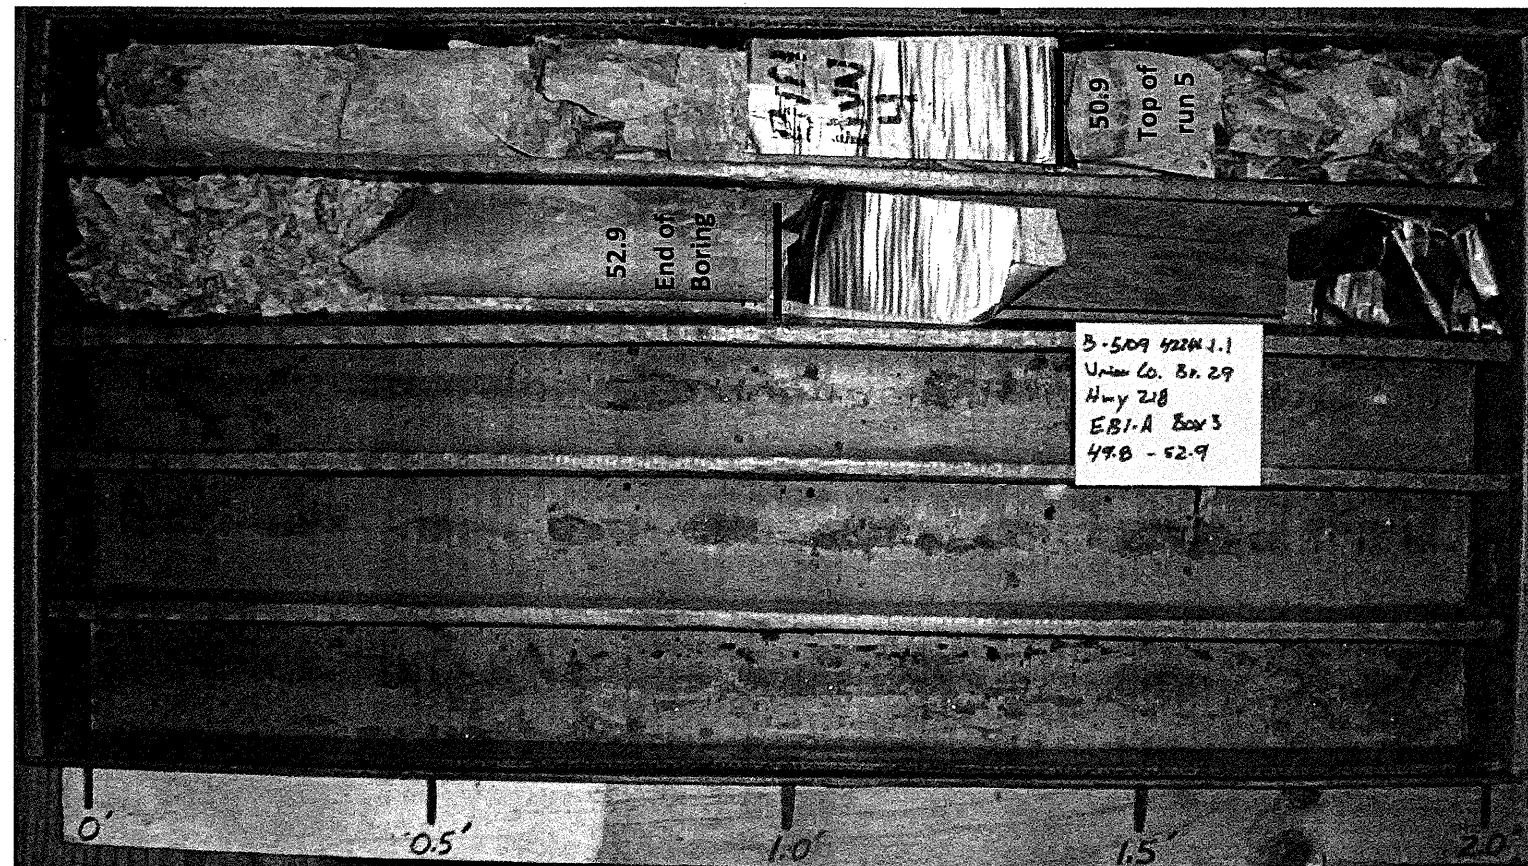 RUN
4
50.9
Top of
run 5
52.9
End of
Boring
B-5109 42244.1.1
Union Co. Br. 29
Hwy 218
EB1-A Box 3
49.8 - 52.9
0'
0.5'
1.0'
1.5'
2.0'